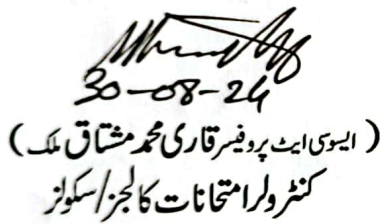 30-08-24
( ایسوسی ایٹ پروفیسر قاری محمد مشتاق ملک )
کنٹرولر امتحانات کالجز/سکولز